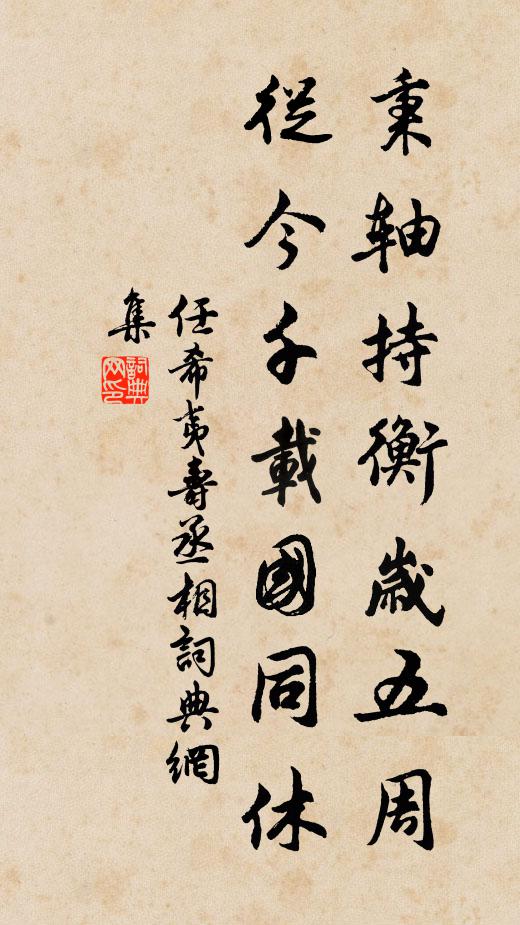 秉軸持衡歲五周
從今千載國同休
任希夷壽丞相詞典網
集
詞典
网印